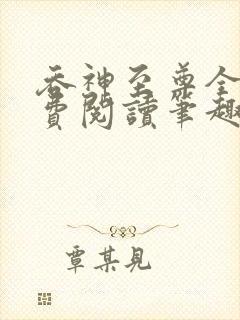 吞神至尊全
費閱讀筆趣
覃某見